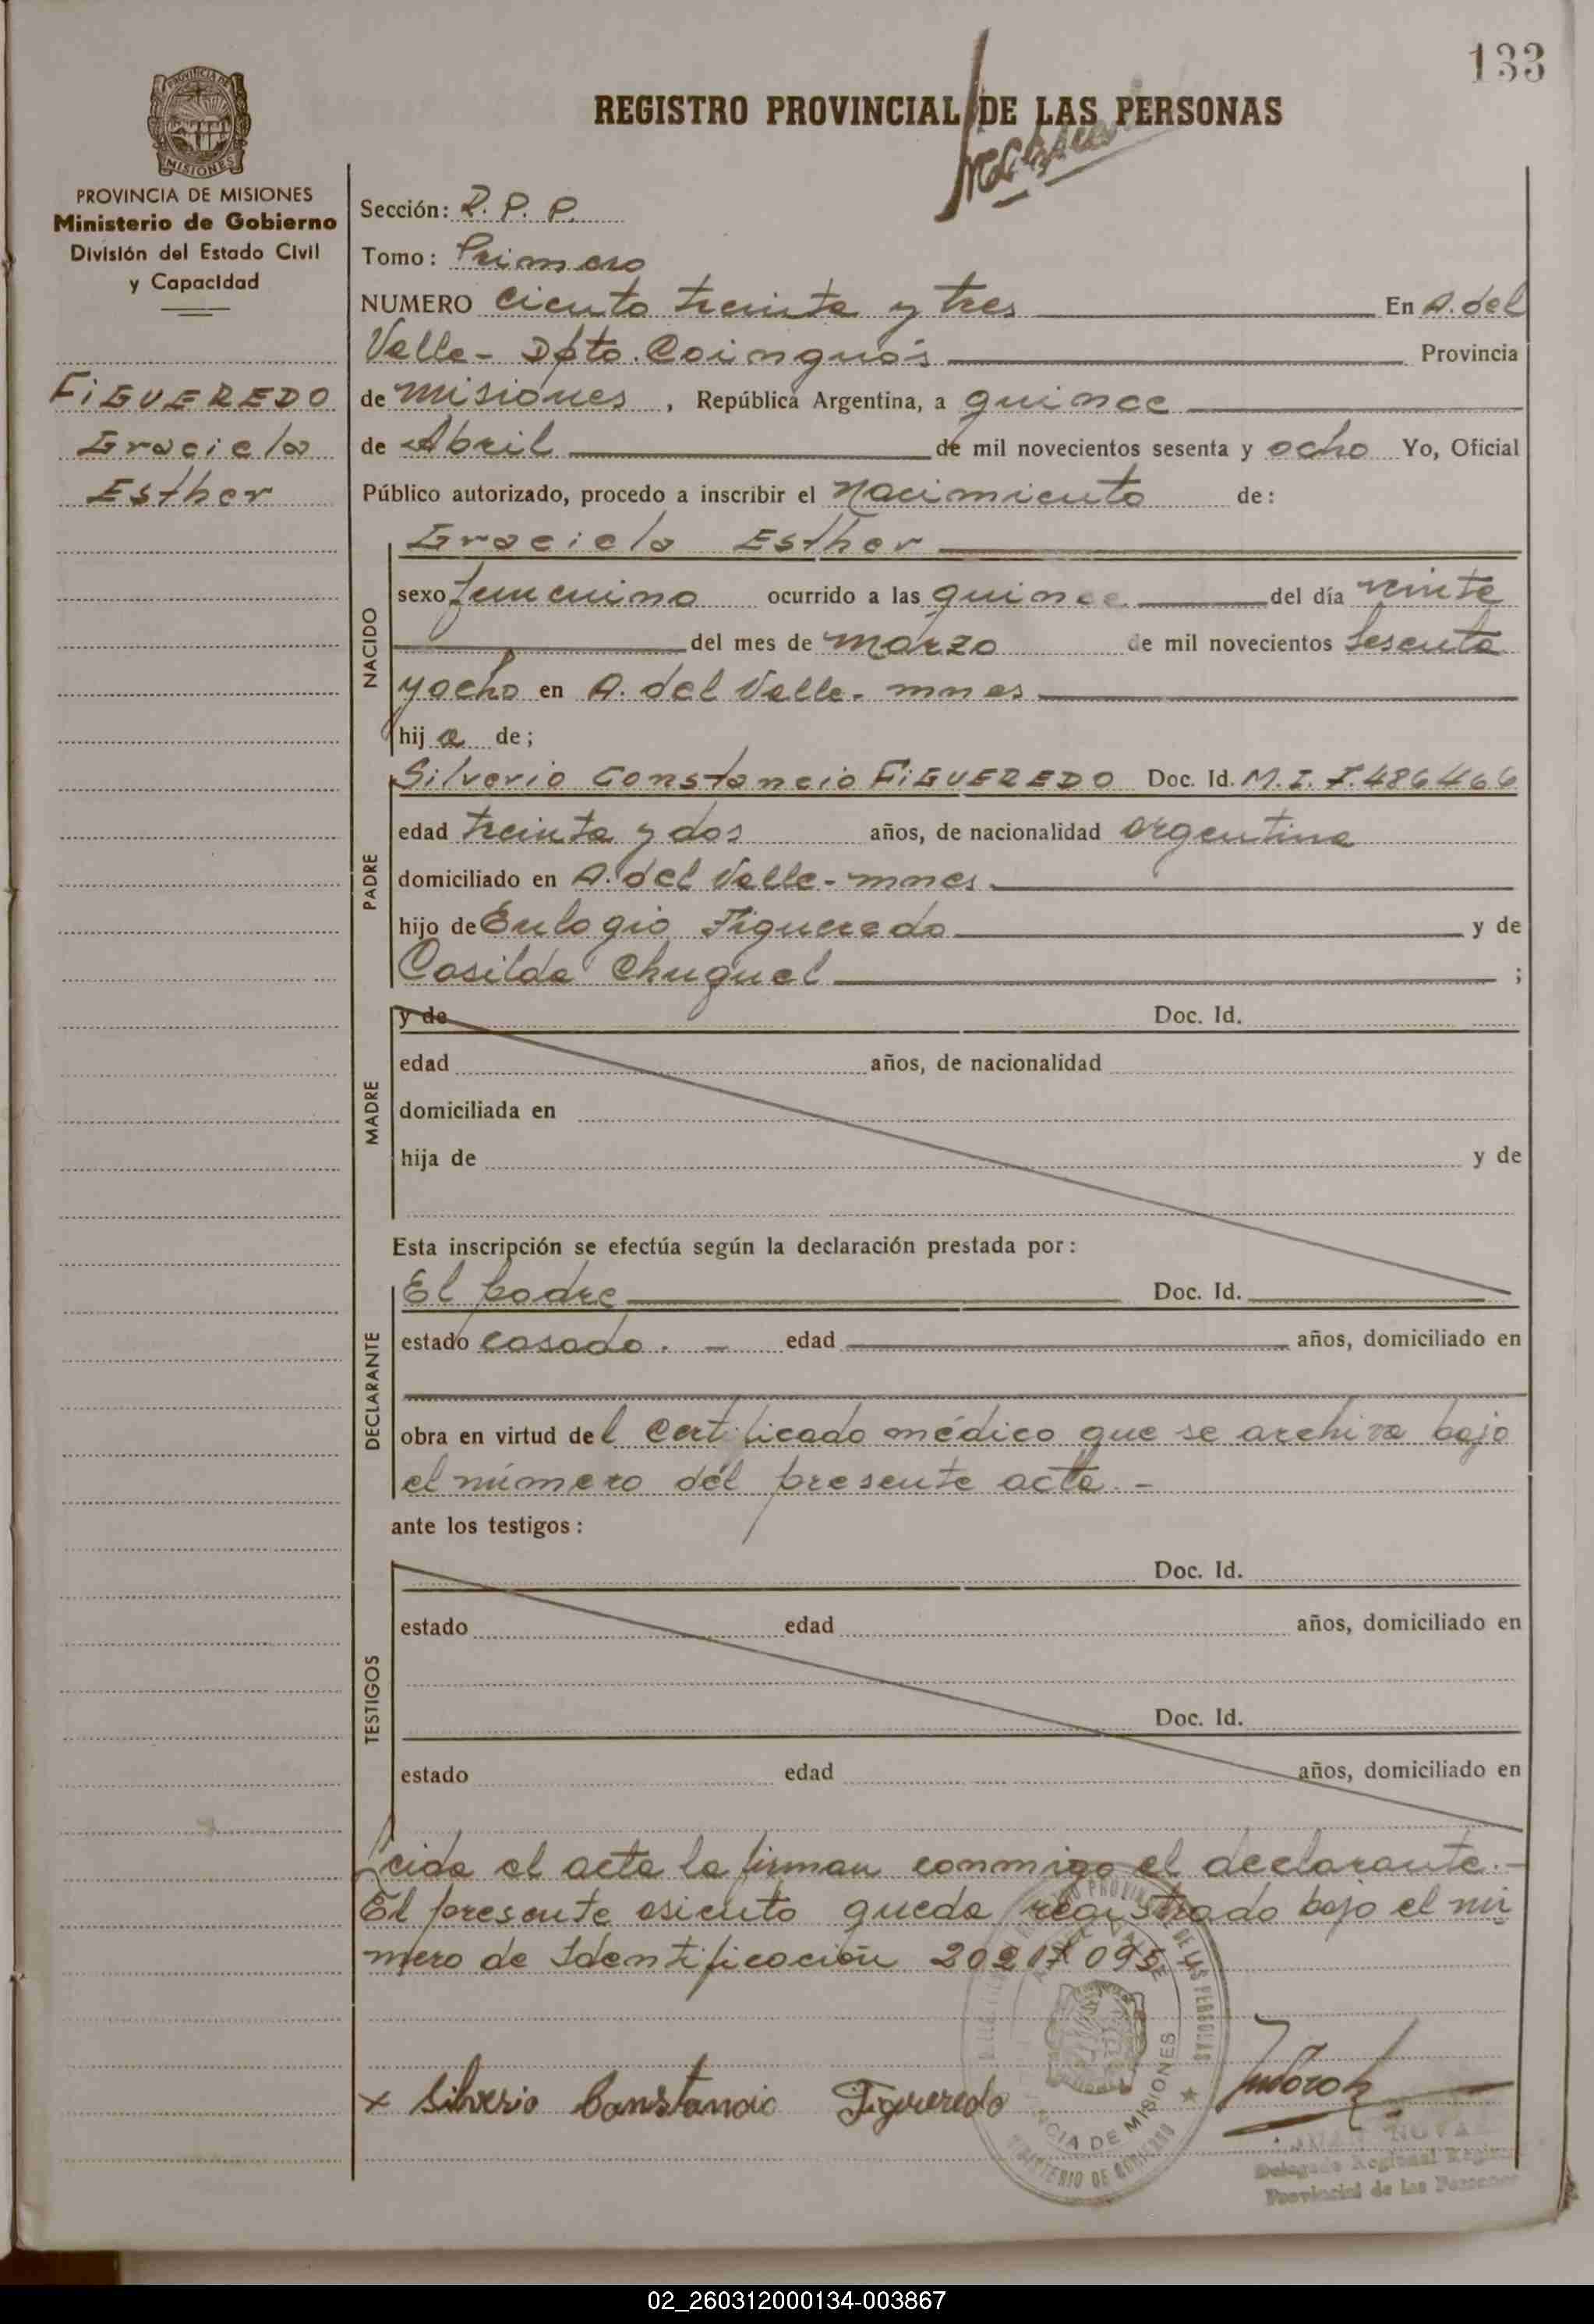 133
REGISTRO PROVINCIAL DE LAS PERSONAS
PROVINCIA DE MISIONES
Ministerio de Gobierno
División del Estado Civil
y Capacidad
FIGUEREDO
Graciela
Esther
Sección: R. P. P.
Tomo: Primero
NUMERO ciento treinta y tres En A. del
Valle - Dpto. Cainguás Provincia
de Misiones, República Argentina, a quince
de Abril de mil novecientos sesenta y ocho Yo, Oficial
Público autorizado, procedo a inscribir el Nacimiento de:
Graciela Esther
NACIDO
sexo femenino ocurrido a las quince del día veinte
del mes de marzo de mil novecientos sesenta
y ocho en A. del Valle - mnes
hij a de;
PADRE
Silverio Constancio FIGUEREDO Doc. Id. M. I. 7.486466
edad treinta y dos años, de nacionalidad argentina
domiciliado en A. del Valle - mnes
hijo de Eulogio Figueredo y de
Casilda Chuguel ;
MADRE
y de Doc. Id.
edad años, de nacionalidad
domiciliada en
hija de y de
Esta inscripción se efectúa según la declaración prestada por:
DECLARANTE
El padre Doc. Id.
estado casado. - edad años, domiciliado en
obra en virtud del certificado médico que se archiva bajo
el número del presente acta. -
ante los testigos:
TESTIGOS
Doc. Id.
estado edad años, domiciliado en
Doc. Id.
estado edad años, domiciliado en
cida el acta la firman conmigo el declarante. -
El presente asiento queda registrado bajo el nú
mero de Identificación 20217095
x Silverio Constancio Figueredo
PROVINCIA DE MISIONES
MINISTERIO DE GOBIERNO
Delegado Regional Registro
Provincial de las Personas
02_260312000134-003867